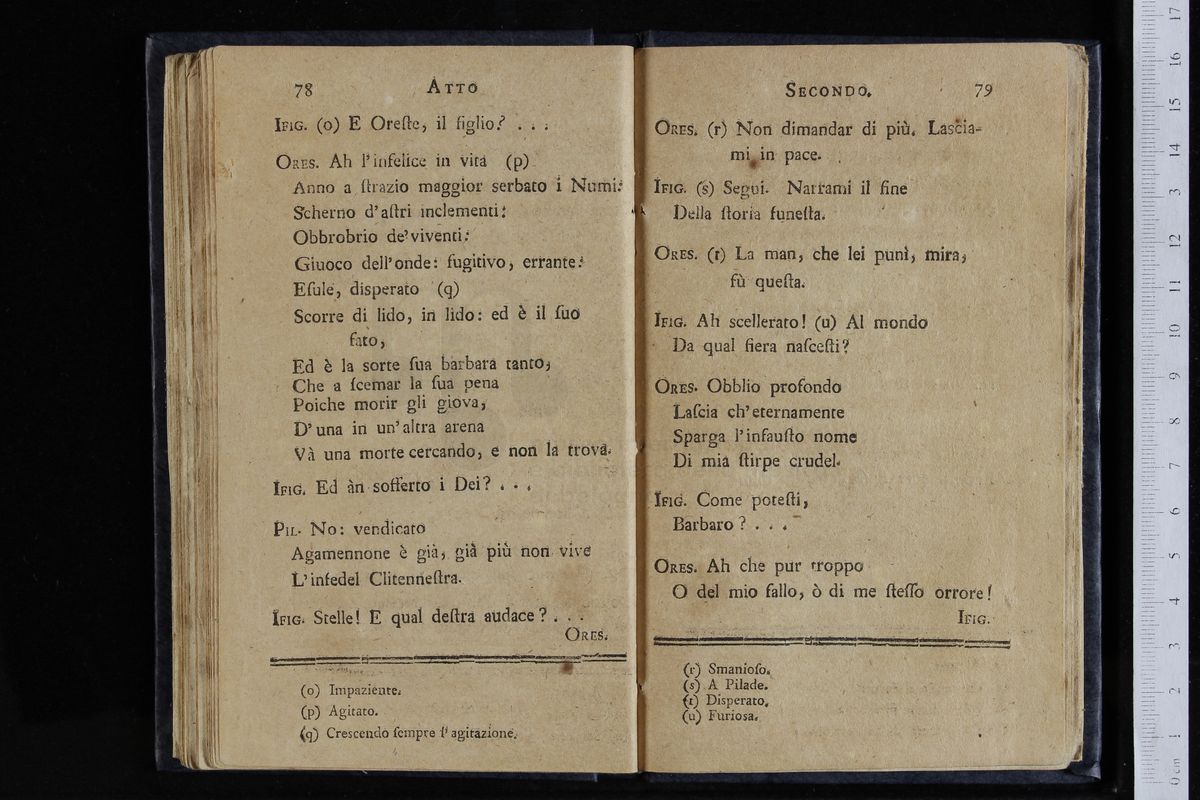 78 ATTO
IFIG. (o) E Oreſte, il figlio? . . .
ORES. Ah l'infelice in vita (p)
Anno a ſtrazio maggior serbato i Numi:
Scherno d'aſtri inclementi:
Obbrobrio de'viventi:
Giuoco dell'onde: fugitivo, errante:
Eſule, disperato (q)
Scorre di lido, in lido: ed è il ſuo
fato,
Ed è la sorte ſua barbara tanto,
Che a ſcemar la ſua pena
Poiche morir gli giova,
D'una in un'altra arena
Và una morte cercando, e non la trova.
IFIG. Ed àn sofferto i Dei? . . .
PIL. No: vendicato
Agamennone è già, già più non vive
L'infedel Clitenneſtra.
IFIG. Stelle! E qual deſtra audace? . . .
ORES.
(o) Impaziente.
(p) Agitato.
(q) Creſcendo ſempre l'agitazione.
SECONDO. 79
ORES. (r) Non dimandar di più. Lascia-
mi in pace.
IFIG. (s) Segui. Narrami il fine
Della ſtoria funeſta.
ORES. (t) La man, che lei punì, mira,
fù queſta.
IFIG. Ah scellerato! (u) Al mondo
Da qual fiera naſceſti?
ORES. Obblio profondo
Laſcia ch'eternamente
Sparga l'infauſto nome
Di mia ſtirpe crudel.
IFIG. Come poteſti,
Barbaro? . . .
ORES. Ah che pur troppo
O del mio fallo, ò di me ſteſſo orrore!
IFIG.
(r) Smanioſo.
(s) A Pilade.
(t) Disperato.
(u) Furiosa.
0 cm 1 2 3 4 5 6 7 8 9 10 11 12 13 14 15 16 17